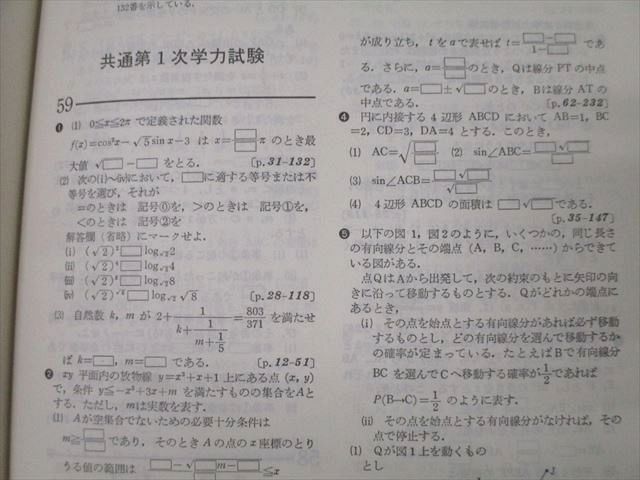 132番を示している.
共通第1次学力試験
59
❶ (1) 0≦x≦2π で定義された関数
f(x)=cos²x−√5 sin x−3 は x=□/□π のとき最
大値 √□−□ をとる. [p.31-132]
(2) 次の(i)〜(iv)において, □に適する等号または不
等号を選び, それが
=のときは 記号⓪を, >のときは 記号①を,
<のときは 記号②を
解答欄(省略)にマークせよ.
(i) (√2)²□log√2 2
(ii) (√2)⁴□log√2 4
(iii) (√2)⁸□log√2 8
(iv) □log√2 √8 [p.28-118]
(3) 自然数 k, m が 2+1/(k+1/(m+1/5))=803/371 を満たせ
ば k=□, m=□ である. [p.12-51]
❷ xy 平面内の放物線 y=x²+x+1 上にある点 (x, y)
で, 条件 y≦−x²+3x+m を満たすものの集合をAと
する. ただし, mは実数を表す.
(1) Aが空集合でないための必要十分条件は
m≧□/□であり, そのとき A の点の x 座標のとり
うる値の範囲は □−√□m−□ ≦x
が成り立ち, t を a で表せば t=(□−□)/(1−□) であ
る. さらに, a=□/□のとき, Qは線分 PT の中点
である. a=□±√□のとき, Bは線分 AT の
中点である. [p.62-232]
❹ 円に内接する 4 辺形 ABCD において AB=1, BC
=2, CD=3, DA=4 とする. このとき,
(1) AC=√□/□ (2) sin∠ABC=□√□/□
(3) sin∠ACB=□√□/√□
(4) 4 辺形 ABCD の面積は □√□である.
[p.35-147]
❺ 以下の図1, 図2のように, いくつかの, 同じ長さ
の有向線分とその端点 (A, B, C, ……) からできて
いる図がある.
点QはAから出発して, 次の約束のもとに矢印の向
きに沿って移動するものとする. Qがどれかの端点に
あるとき,
(i) その点を始点とする有向線分があれば必ず移動
するものとし, どの有向線分を選んで移動するか
の確率が定まっている. たとえばBで有向線分
BC を選んでCへ移動する確率が1/2であれば
P(B→C)=1/2 のように表す.
(ii) その点を始点とする有向線分がなければ, その
点で停止する.
(1) Qが図1上を動くもの
とし